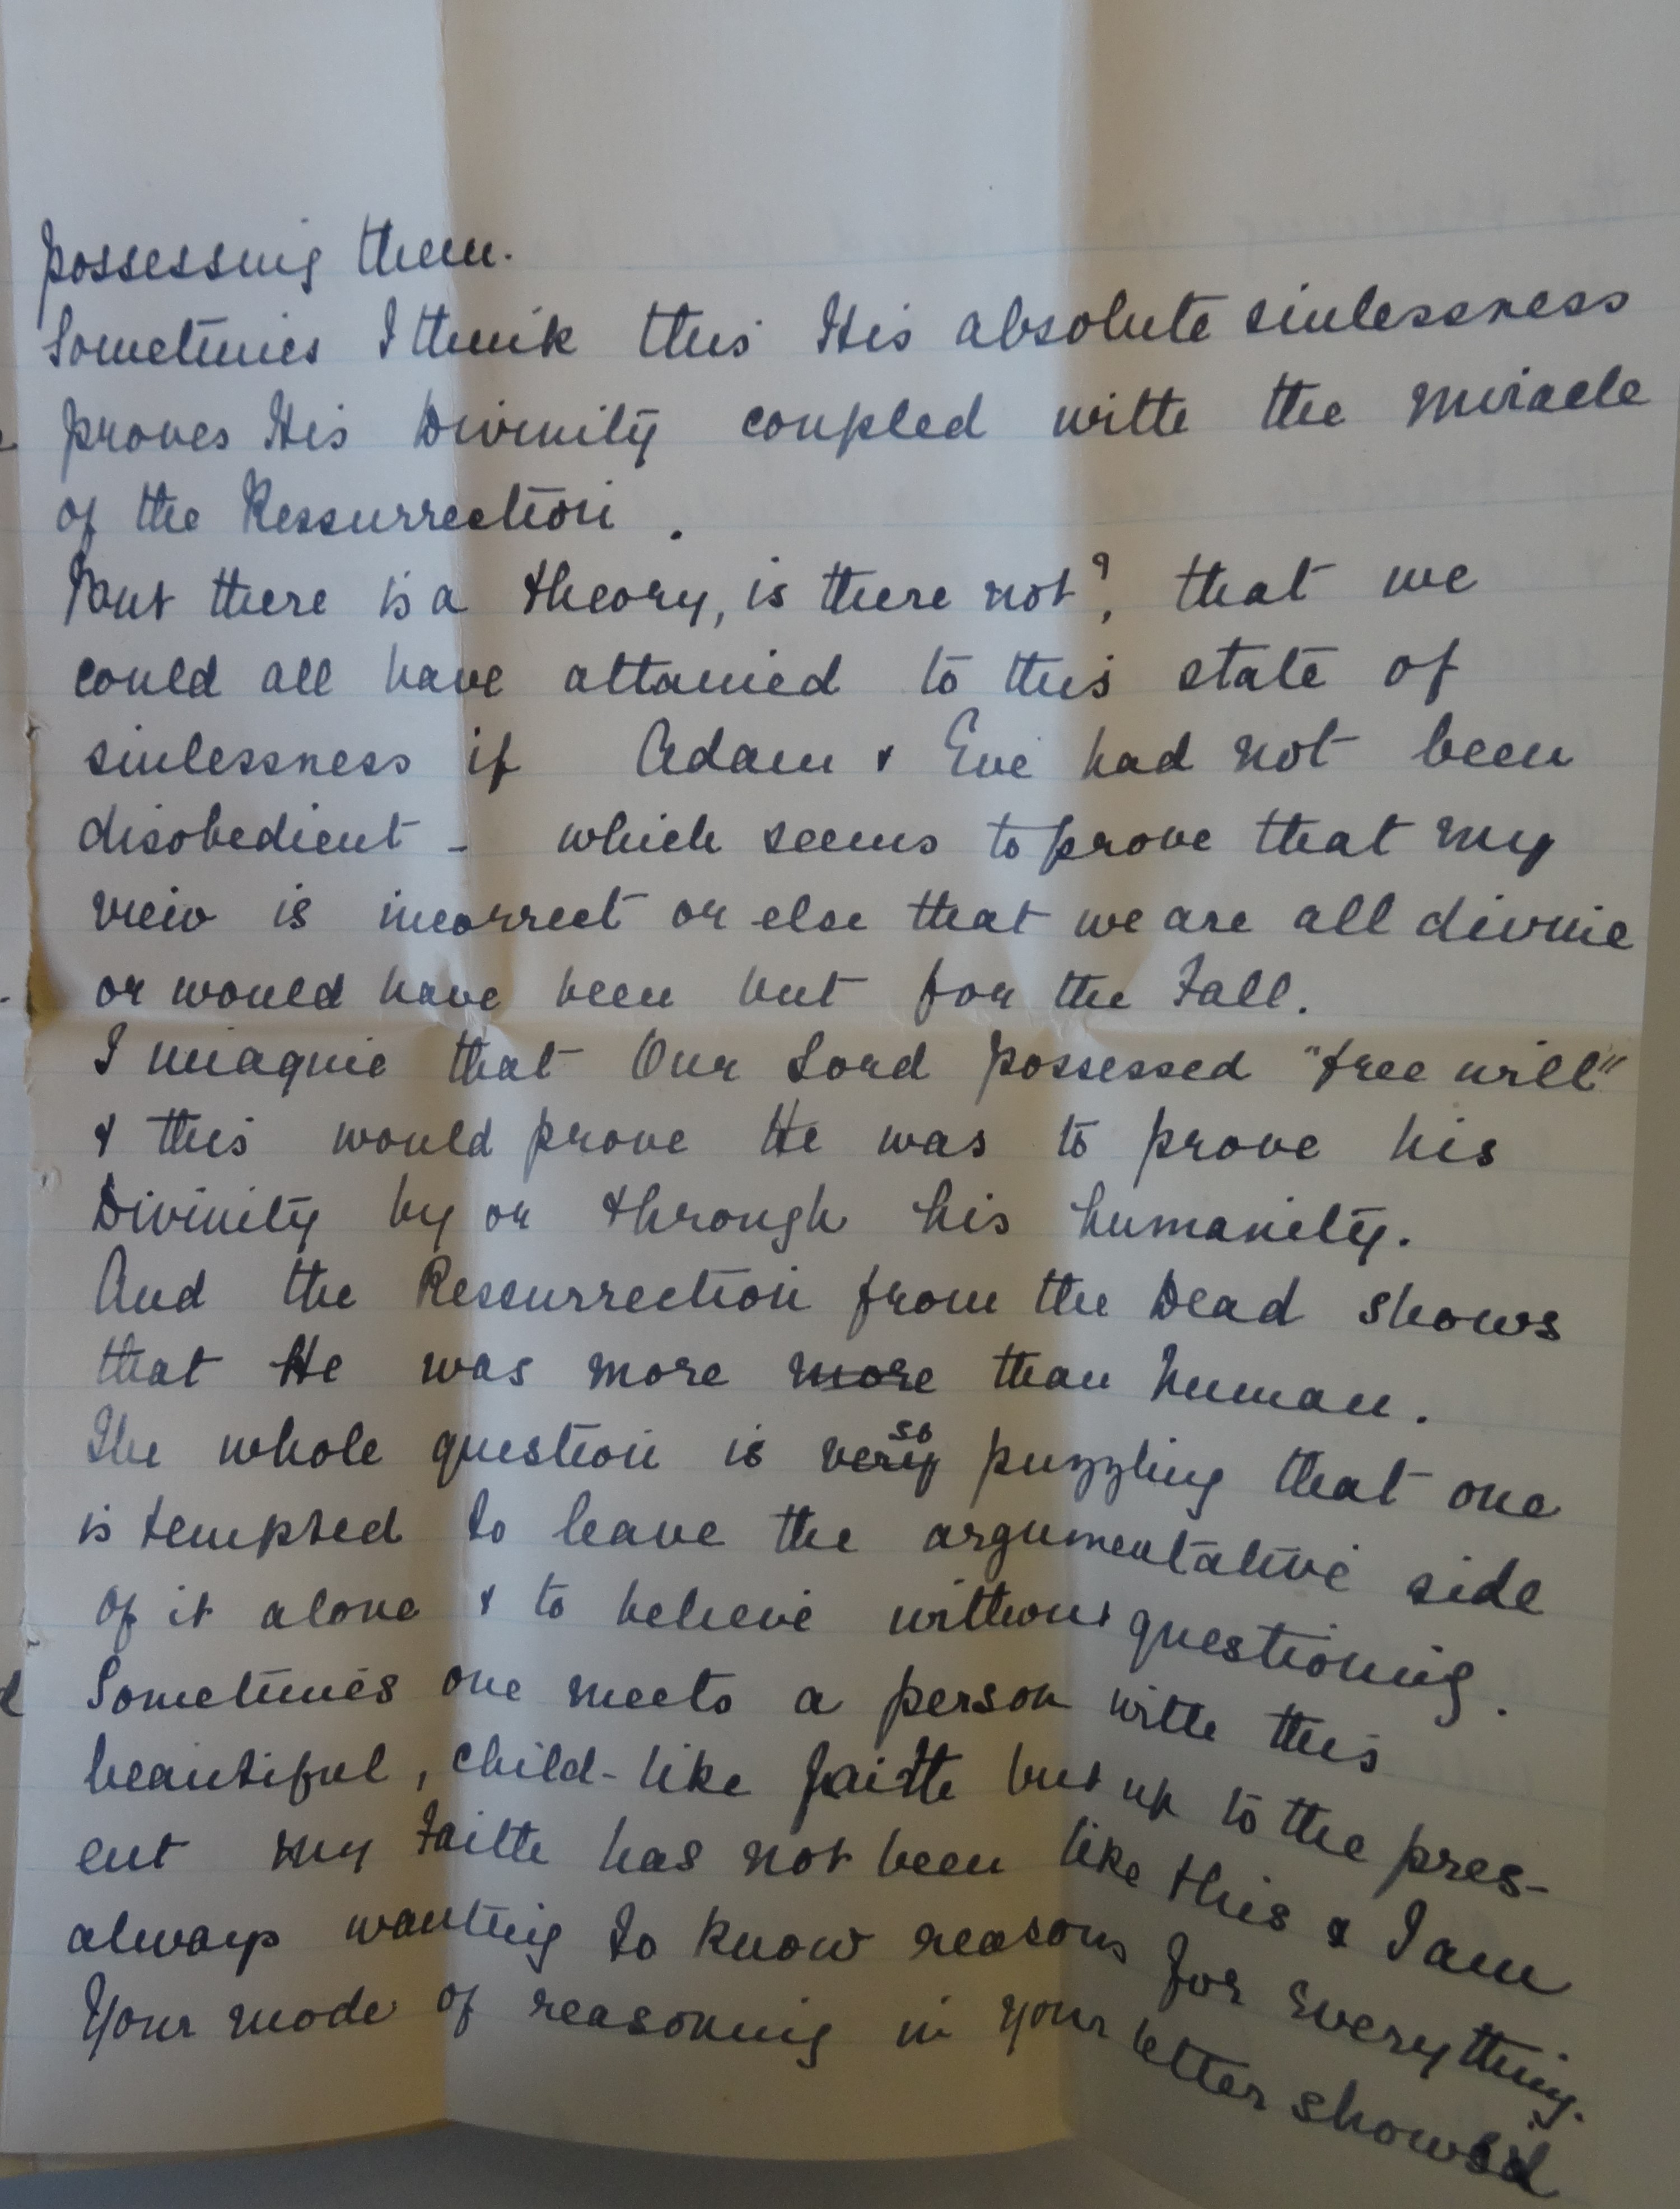 possessing them.
Sometimes I think this His absolute sinlessness
proves His Divinity coupled with the miracle
of the Ressurrection.
But there is a theory, is there not?, that we
could all have attained to this state of
sinlessness if Adam & Eve had not been
disobedient - which seems to prove that my
view is incorrect or else that we are all divine
or would have been but for the Fall.
I imagine that Our Lord possessed "free will"
& this would prove He was to prove his
Divinity by or through his humanity.
And the Ressurrection from the Dead shows
that He was more more than human.
The whole question is very so puzzling that one
is tempted to leave the argumentative side
of it alone & to believe without questioning.
Sometimes one meets a person with this
beautiful, child-like faith but up to the pres-
ent my Faith has not been like this & I am
always wanting to know reasons for everything.
Your mode of reasoning in your letter showed